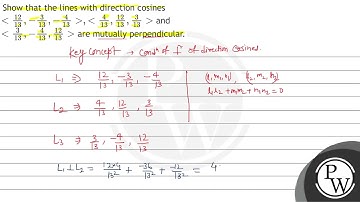 Show that the lines with direction cosines
< 12/13, -3/13, -4/13 >, < 4/13, 12/13, 3/13 > and
< 3/13, -4/13, 12/13 > are mutually perpendicular.
Key concept → condn of ⊥ of direction cosines.
L1 ⇒ 12/13, -3/13, -4/13
(l1, m1, n1) (l2, m2, n2)
l1l2 + m1m2 + n1n2 = 0
L2 ⇒ 4/13, 12/13, 3/13
L3 ⇒ 3/13, -4/13, 12/13
L1 ⊥ L2 = 12×4/13² + -36/13² + -12/13² = 4
PW